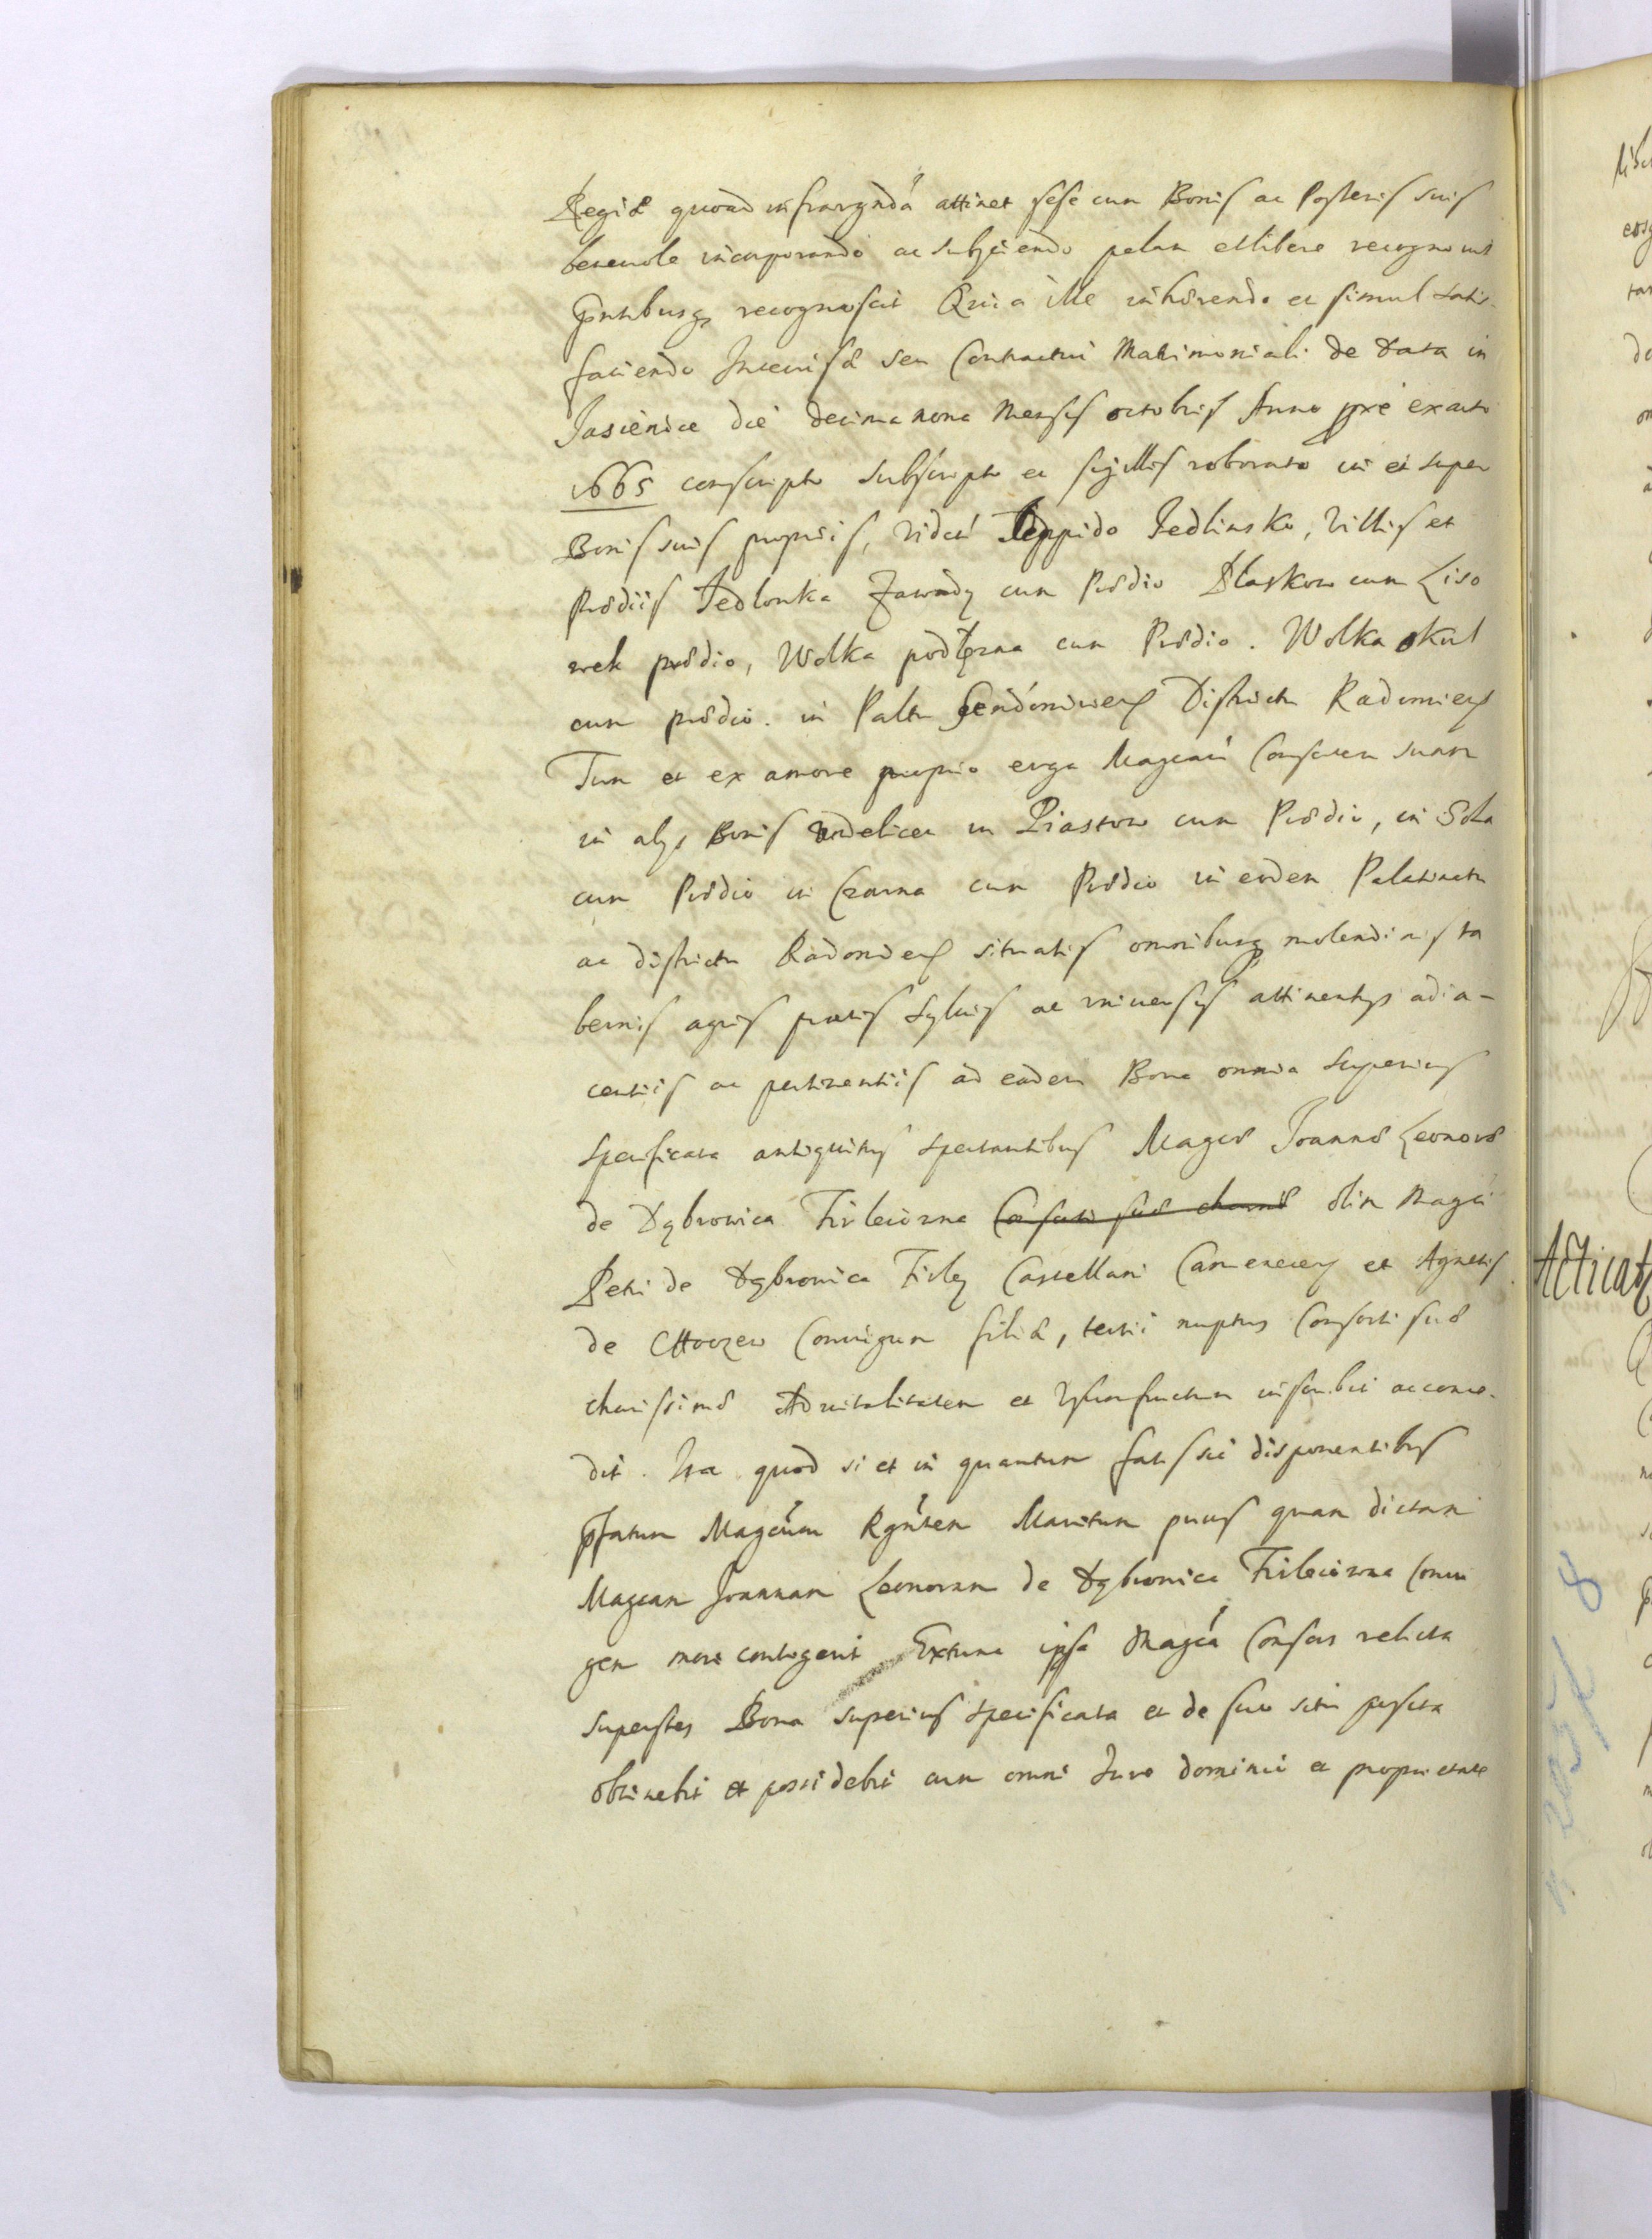 Regiæ quoad infrargnda attinet sese cum Bonis ac Posteris suis
benevole incorporando ac subyciendo palam et libere recognovit
pntibusq recognoscit Quia ille inhærendo et simul satis-
faciendo Intercisæ seu Contractui Matrimoniali de data in
Jasienice die decima nona Mensis octobris Anno pxe exacto
1665 conscripto subscripto et sigillis roborato in et super
Bonis suis propriis, Videlt Oppido Jedlinsko, Villis et
Prædiis Jedlonka Zawady cum Prædio Płaskow cum Liso
wek prædio, Wolka podlęzna cum Prædio. Wolka okul
cum prædio. in Paltu Sendomirien Districtu Radomien
Tum et ex amore proprio erga Magcam Consortem suam
in alys Bonis videlicet in Piastow cum Prædio, in Sola
cum Prædio in Czarna cum Prædio in eodem Palatinatu
ac districtu Radomien situatis omnibusq molendinis ta
bernis agris pratis sylvis ac universis attinentys adia-
centiis ac pertinentiis ad eadem Bona omnia superius
specificata antiquitus spectantibus Magcæ Joannæ Leonoræ
de Dąbrowica Firleiowna Consorti suæ charæ olim Magci
Petri de Dąbrowica Firley Castellani Camenecen et Agnetis
de Coniugum filiæ, tertii nuptus Consorti suæ
charissimæ Advitalitatem et Usumfructum inscribit ac conce-
dit. Ita quod si et in quantum fatis sic disponentibus
pfatum Magcum Rgntem Maritum prius quam dictam
Magcam Joannam Leonoram de Dąbrowica Firleiowna Coniu
gem mori contigerit Extunc ipsa Magca Consors relicta
superstes Bona superius specificata et de suo situ
obtinebit et possidebit cum omni Jure dominii et proprietate
Acticat